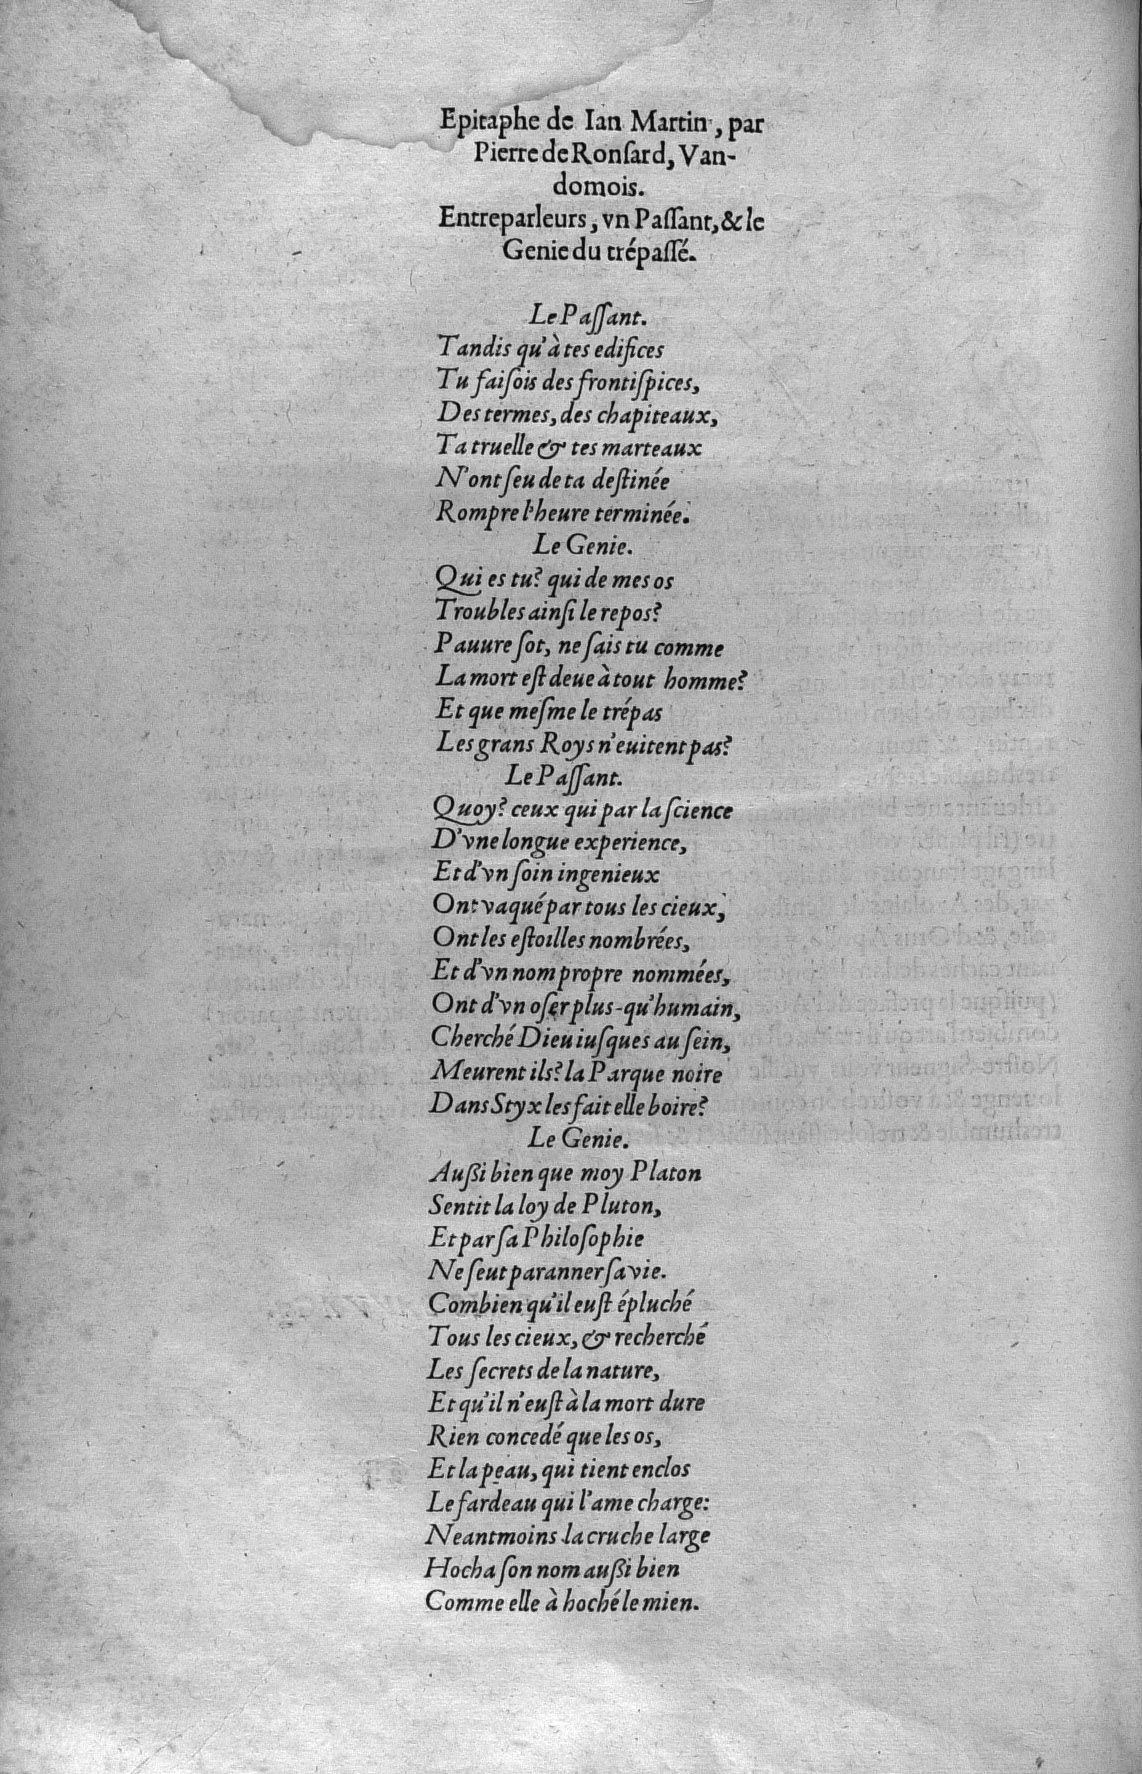 Epitaphe de Ian Martin, par
Pierre de Ronſard, Van-
domois.
Entreparleurs, vn Paſſant, & le
Genie du trépaſſé.
Le Paſſant.
Tandis qu'à tes edifices
Tu faiſois des frontiſpices,
Des termes, des chapiteaux,
Ta truelle & tes marteaux
N'ont ſeu de ta deſtinée
Rompre l'heure terminée.
Le Genie.
Qui es tu? qui de mes os
Troubles ainſi le repos?
Pauure ſot, ne ſais tu comme
La mort eſt deue à tout homme?
Et que meſme le trépas
Les grans Roys n'euitent pas?
Le Paſſant.
Quoy? ceux qui par la ſcience
D'vne longue experience,
Et d'vn ſoin ingenieux
Ont vaqué par tous les cieux,
Ont les eſtoilles nombrées,
Et d'vn nom propre nommées,
Ont d'vn oſer plus-qu'humain,
Cherché Dieu iuſques au ſein,
Meurent ils? la Parque noire
Dans Styx les fait elle boire?
Le Genie.
Außi bien que moy Platon
Sentit la loy de Pluton,
Et par ſa Philoſophie
Ne ſeut paranner ſa vie.
Combien qu'il euſt épluché
Tous les cieux, & recherché
Les ſecrets de la nature,
Et qu'il n'euſt à la mort dure
Rien concedé que les os,
Et la peau, qui tient enclos
Le fardeau qui l'ame charge:
Neantmoins la cruche large
Hocha ſon nom außi bien
Comme elle à hoché le mien.